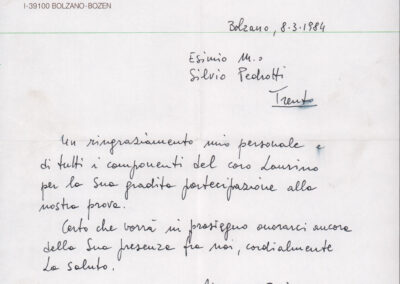 I-39100 BOLZANO-BOZEN
Bolzano, 8.3.1984
Esimio M.o
Silvio Pedrotti
Trento
Un ringraziamento mio personale e
di tutti i componenti del coro Laurino
per la Sua gradita partecipazione alla
nostra prova.
Certo che vorrà in prosieguo onorarci ancora
della Sua presenza fra noi, cordialmente
La saluto.